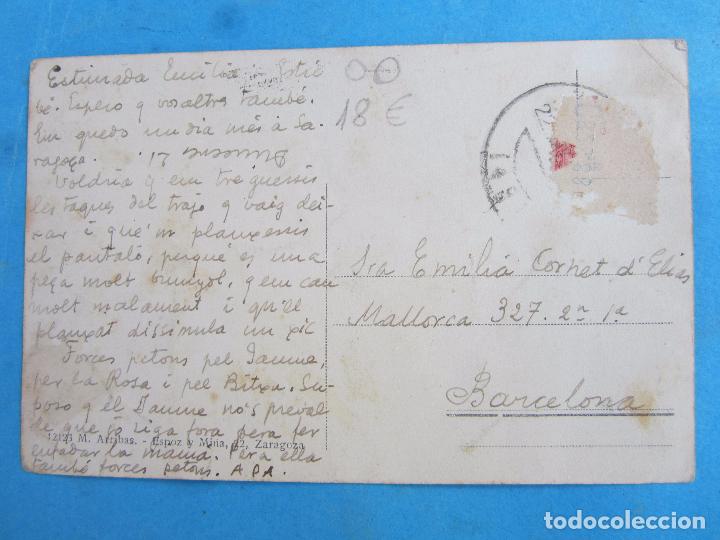 Estimada Emilia Estic
bé. Espero q vosaltres també.
Em quedo un dia més a Sa-
ragoça.
Voldria q em treguessis
les taques del trajo q vaig dei-
xar i que'm planxessis
el pantaló, perquè és una
peça molt bunyol, q em cau
molt malament i qu'el
planxat dissimula un xic
Forces petons pel Jaume,
per la Rosa i pel Bitxa. Su-
poso q el Jaume no's preval
de que jo siga fora pera fer
enfadar la mama. Pera ella
també forces petons. APA.
12121 M. Arribas. - Espoz y Mina, 42, Zaragoza
18 €
Sra Emilia Cornet d'Elias
Mallorca 327. 2n 1a
Barcelona
todocoleccion.net